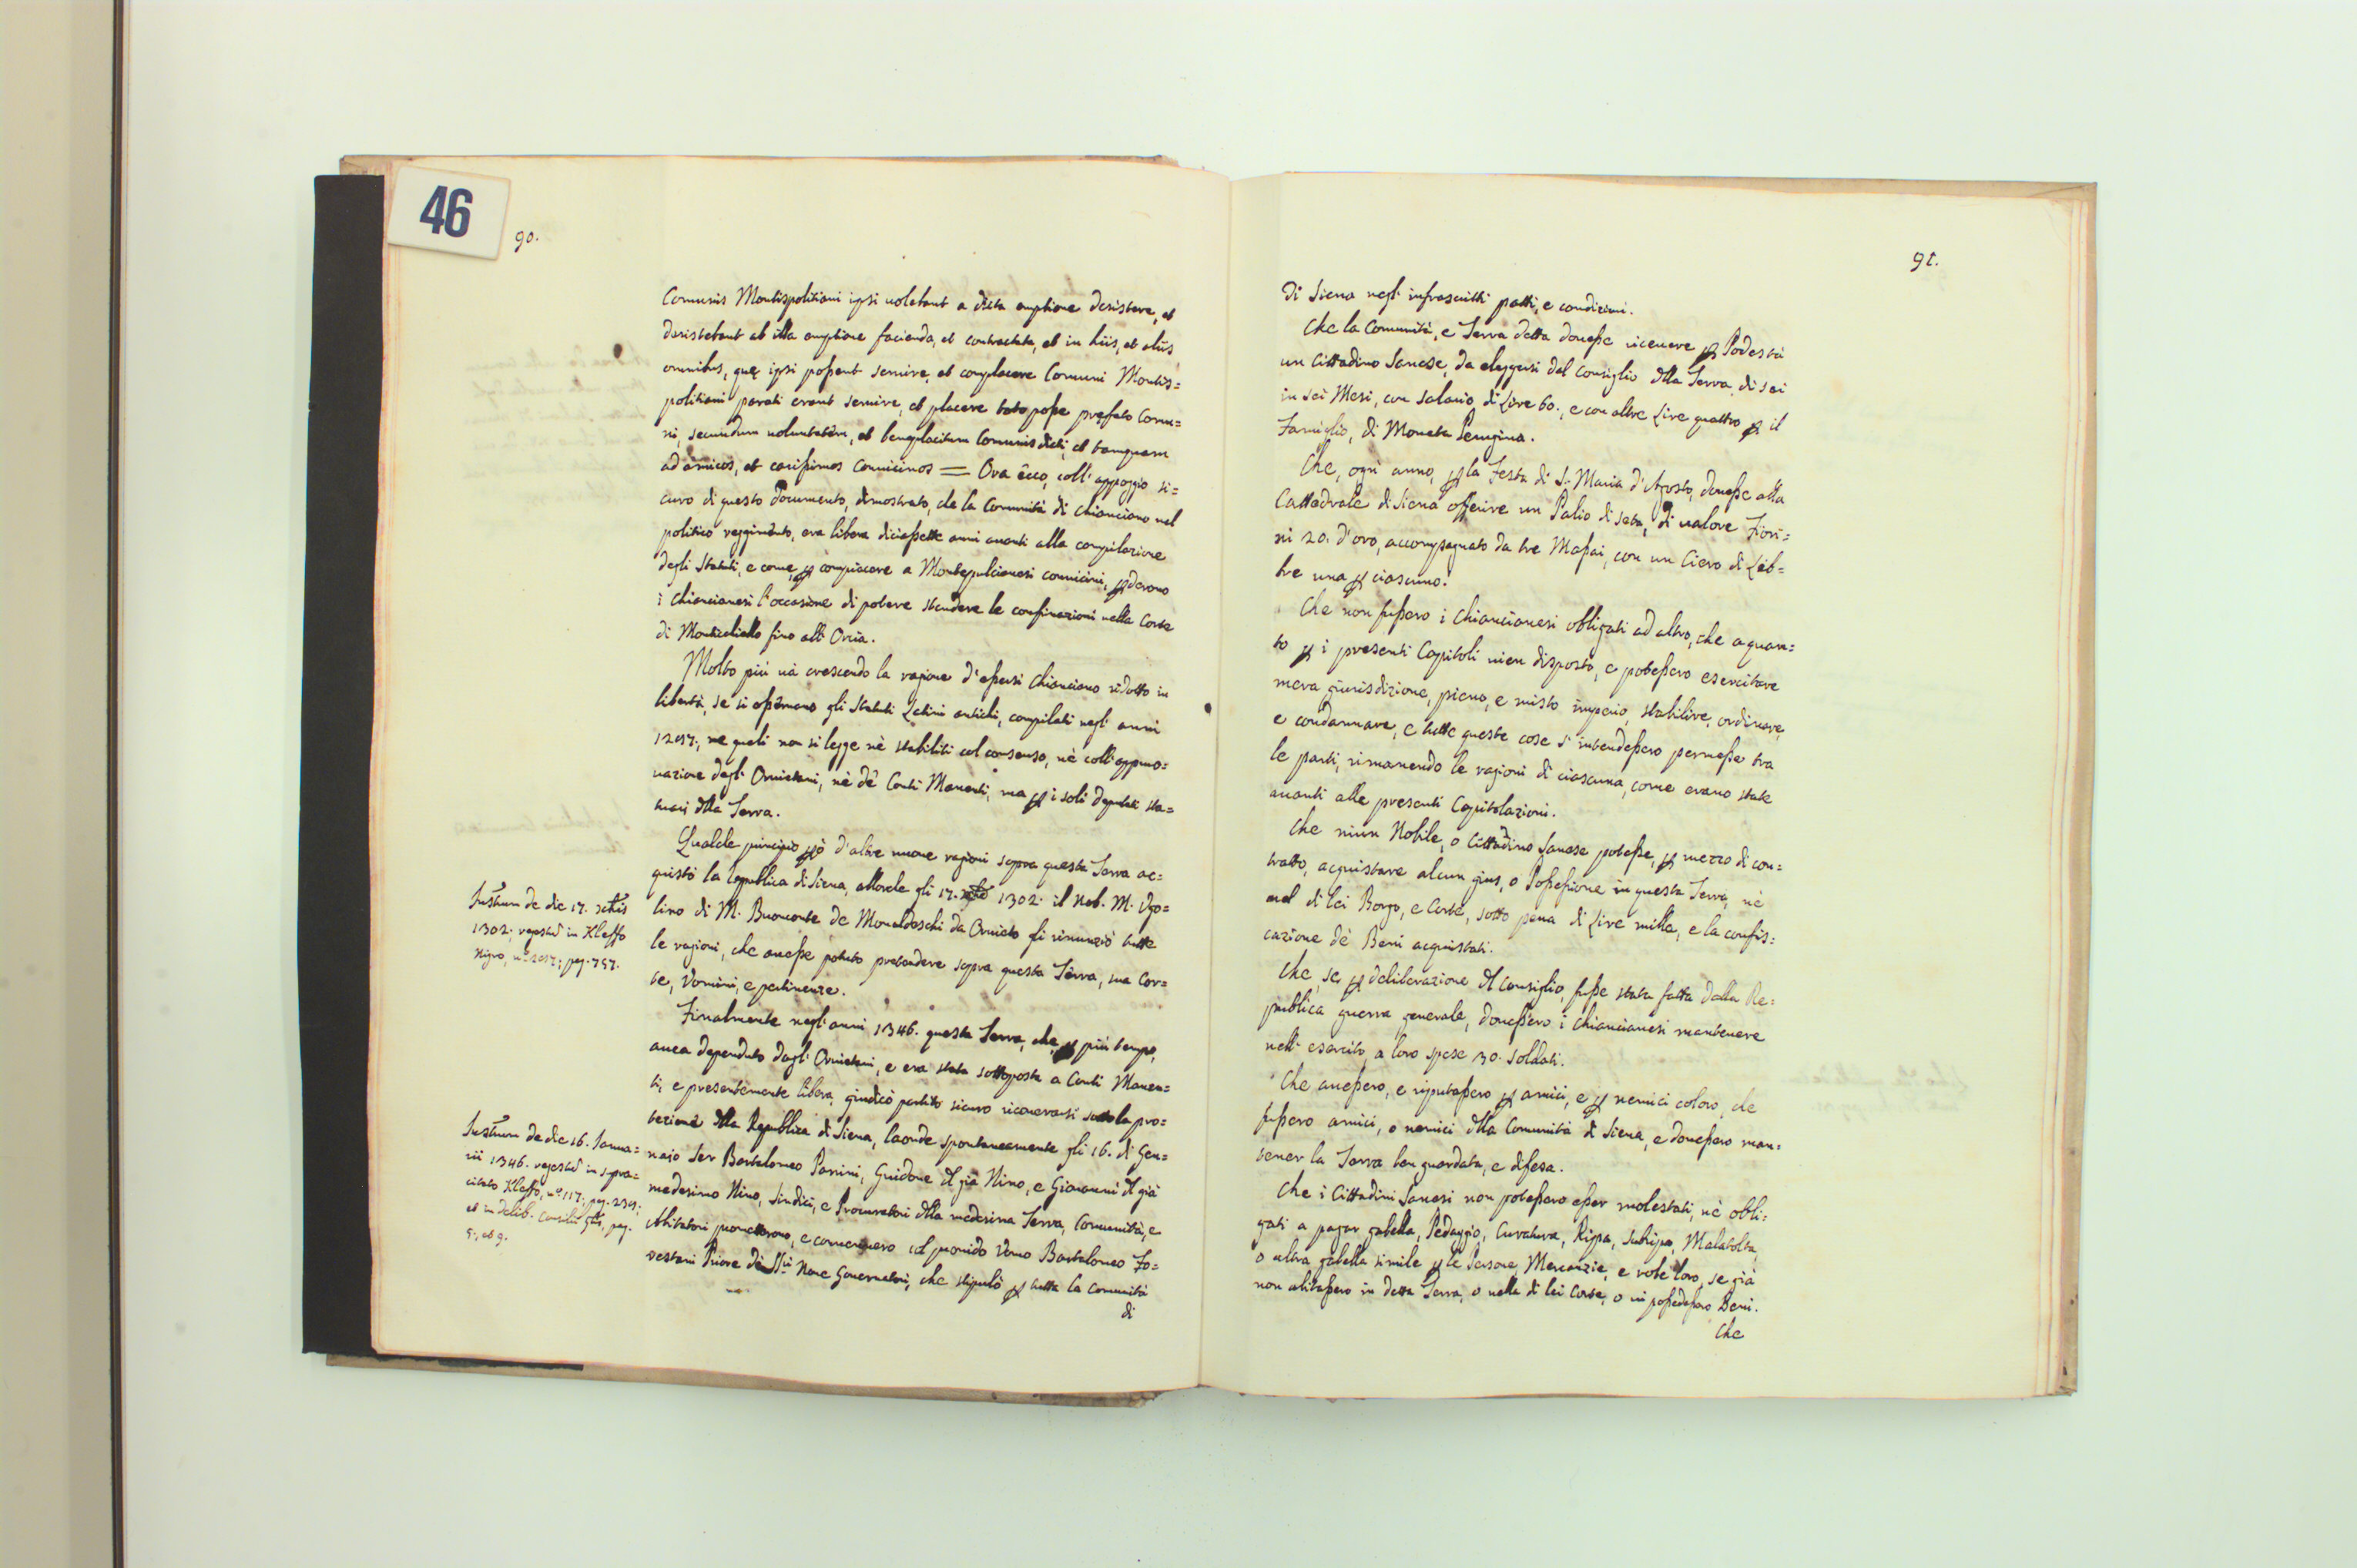 46
90.
Comunis Montispolitiani ipsi uolebant a dicta emptione desistere, et
desistebant ab illa emptione facienda, et contractata, et in hiis, et aliis
omnibus, quę ipsi poßent seruire, et complacere Comuni Montis=
politiani parati erant seruire, et placere toto poße prefato Comu=
ni, secundum uoluntatem, et beneplacitum Comunis dicti, et tamquam
ad amicos, et carißimos conuicinos = Ora ecco, coll' appoggio si=
curo di questo Documento, dimostrato, che la Comunità di Chianciano nel
politico reggimento, era libera diciaßette anni auanti alla compilazione
degli Statuti, e come, ꝑ compiacere a Montepulcianesi conuicini, ꝑderono
i Chiancianesi l'occasione di potere stendere le confinazioni nella Corte
di Monticchiello fino all' Orcia.
Molto più uà crescendo la ragione d'eßersi Chianciano ridotto in
libertà, se si oßeruano gli Statuti Latini antichi, compilati negl' anni
1287., ne quali non si legge nè stabiliti col consenso, nè coll' appro=
uazione degl' Oruietani, nè dè Conti Manenti, ma ꝑ i soli deputati sta=
tuari dlla Terra.
Qualche principio ꝑò d'altre nuoue ragioni sopra questa Terra ac=
quistò la Repubblica di Siena, allorche gli 17. 1302. il Nob. M. Ugo=
lino di M. Buonconte de Monaldeschi da Oruieto gli rinunziò tutte
le ragioni, che aueße potuto pretendere sopra questa Terra, sua Cor=
te, Uomini, e pertinenze.
Finalmente negl' anni 1346. questa Terra, che, ꝑ più tempo,
auea dependuto dagl' Oruietani, e era stata sottoposta a Conti Manen=
ti, e presentemente libera, giudicò partito sicuro ricouerarsi sotto la pro=
tezione dlla Repubblica di Siena, laonde spontaneamente gli 16. di Gen=
naio Ser Bartolomeo Parrini, Guidone dl già Nino, e Giouanni dl già
medesimo Nino, Sindici, e Procuratori dlla medesima Terra, Comunità, e
Abitatori promettono, e conuennero col prouido Uomo Bartolomeo Fo=
restani Priore dè SS.ri Noue Gouernatori, che stipulò ꝑ tutta la Comunità
di
Instrum de die 17. 
1302; in Kleffo
Nigro, n.o 
Instrum de die 16. Janua=
rii 1346. in supra=
citato Kleffo, n.o 117; pag.
et in delib. Consilii Glis, pag.
5., et 9.
91.
di Siena negl' infrascritti patti, e condizioni.
Che la Comunità, e Terra detta doueße riceuere ꝑ Podestà
un Cittadino Sanese, da eleggersi dal Consiglio dlla Terra, di sei
in sei Mesi, con salario di Lire 60., e con altre Lire quattro ꝑ il
Famiglio, di Moneta Perugina.
Che, ogni anno, ꝑ la Festa di S. Maria d'Agosto, doueße alla
Cattedrale di Siena offerire un Palio di seta, di ualore Fiori=
ni 20. d'oro, accompagnato da tre Maßai, con un Ciero di Lib=
bre una ꝑ ciascuno.
Che non fußero i Chiancianesi obligati ad altro, che a quan=
to ꝑ i presenti Capitoli uien disposto, e poteßero esercitare
mera giurisdizione, pieno, e misto imperio, stabilire, ordinare,
e condannare, e tutte queste cose s'intendeßero permeße tra
le parti, rimanendo le ragioni di ciascuna, come erano state
auanti alle presenti Capitolazioni.
Che niun Nobile, o Cittadino Sanese poteße, ꝑ mezzo di con=
tratto, acquistare alcun gius, o Poßeßione in questa Terra, nè
nel di lei Borgo, e Corte, sotto pena di Lire mille, e la confis=
cazione dè Beni acquistati.
Che, se, ꝑ deliberazione dl Consiglio, fuße stata fatta dalla Re=
pubblica guerra generale, doueßero i Chiancianesi mantenere
nell' esercito, a loro spese 30. soldati.
Che aueßero, e riputaßero ꝑ amici, e ꝑ nemici coloro, che
fußero amici, o nemici dlla Comunità di Siena, e doueßero man=
tener la Terra ben guardata, e difesa.
Che i Cittadini Sanesi non poteßero eßer molestati, nè obli=
gati a pagar gabella, Pedaggio, Curatura, Ripa, Subripa, Malatolta,
o altra gabella simile ꝑ le Persone, Mercanzie, e robe loro, se già
non abitaßero in detta Terra, o nella di lei Corte, o ui poßedeßero Beni.
Che